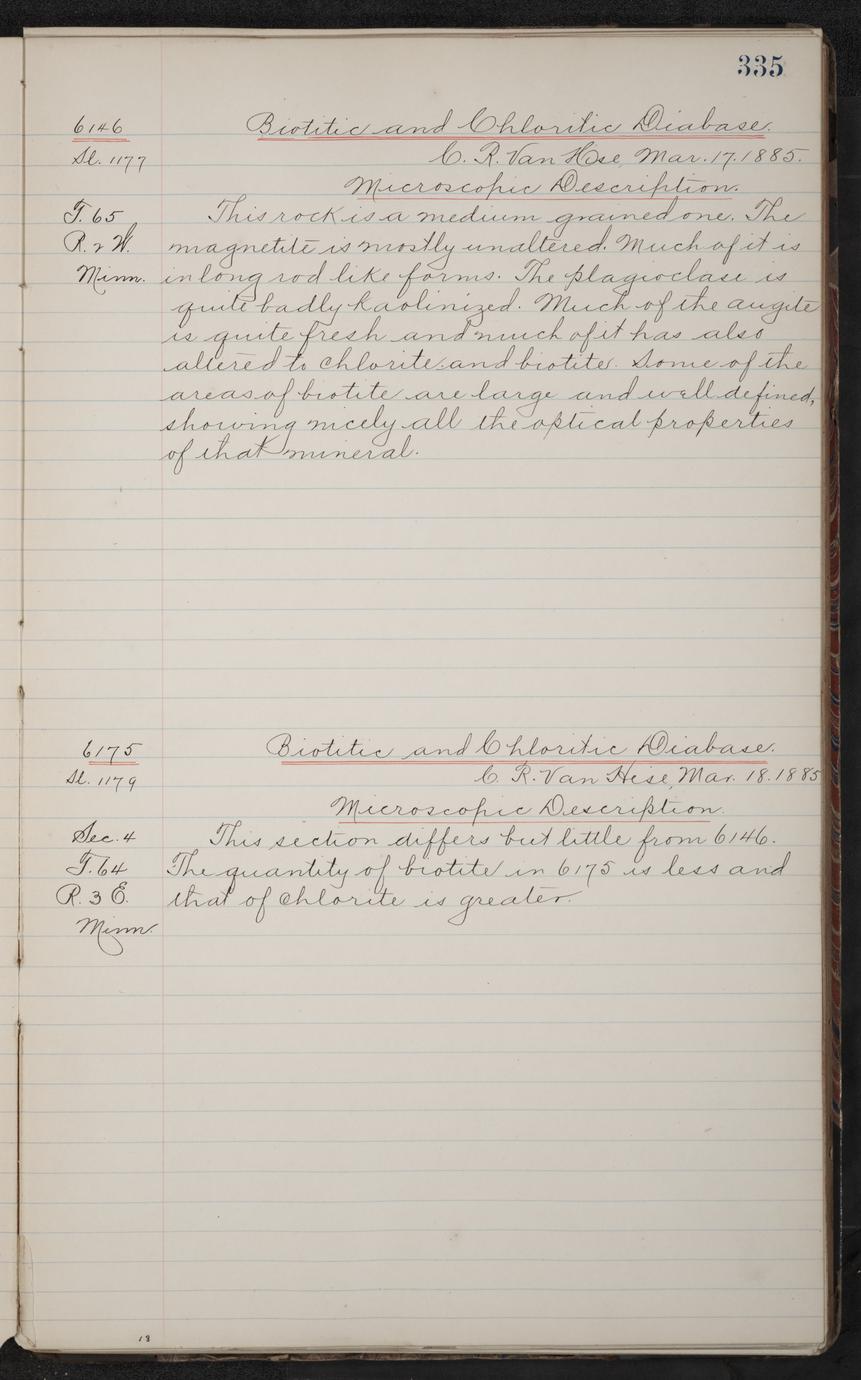 335
6146 Biotitic and Chloritic Diabase.
Sl. 1177 C. R. Van Hse, Mar. 17. 1885.
Microscopic Description.
T. 65 This rock is a medium grained one. The
R. 2 W. magnetite is mostly unaltered. Much of it is
Minn. in long rod like forms. The plagioclase is
quite badly kaolinized. Much of the augite
is quite fresh and much of it has also
altered to chlorite and biotite. Some of the
areas of biotite are large and well defined,
showing nicely all the optical properties
of that mineral.
6175 Biotitic and Chloritic Diabase.
Sl. 1179 C. R. Van Hise, Mar. 18. 1885
Microscopic Description.
Sec. 4 This section differs but little from 6146.
T. 64 The quantity of biotite in 6175 is less and
R. 3 E. that of chlorite is greater.
Minn.
18